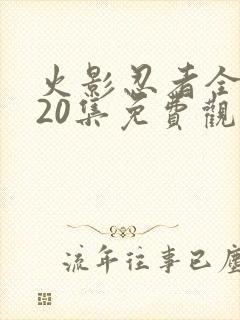 火影忍者全
20集免費觀
流年往事已塵